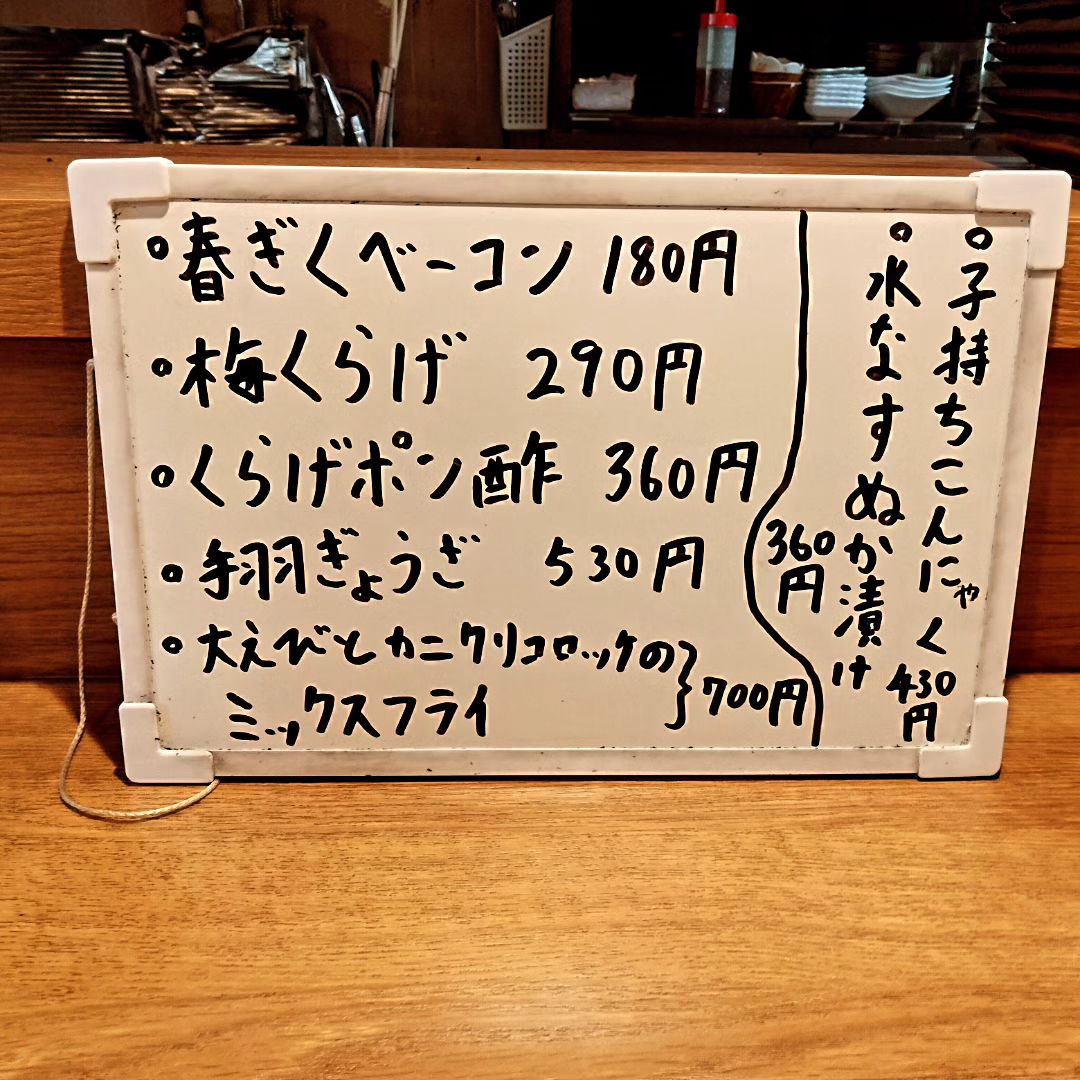 ◦春ぎくベーコン 180円
◦梅くらげ 290円
◦くらげポン酢 360円
◦手羽ぎょうざ 530円
◦大えびとカニクリコロッケの
ミックスフライ } 700円
◦子持ちこんにゃく 430円
◦水なすぬか漬け 360円